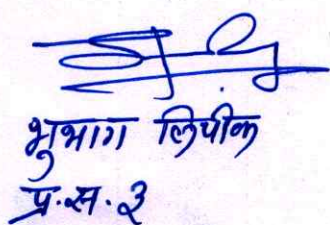 भुभाग लिपीक
प्र.स. ३